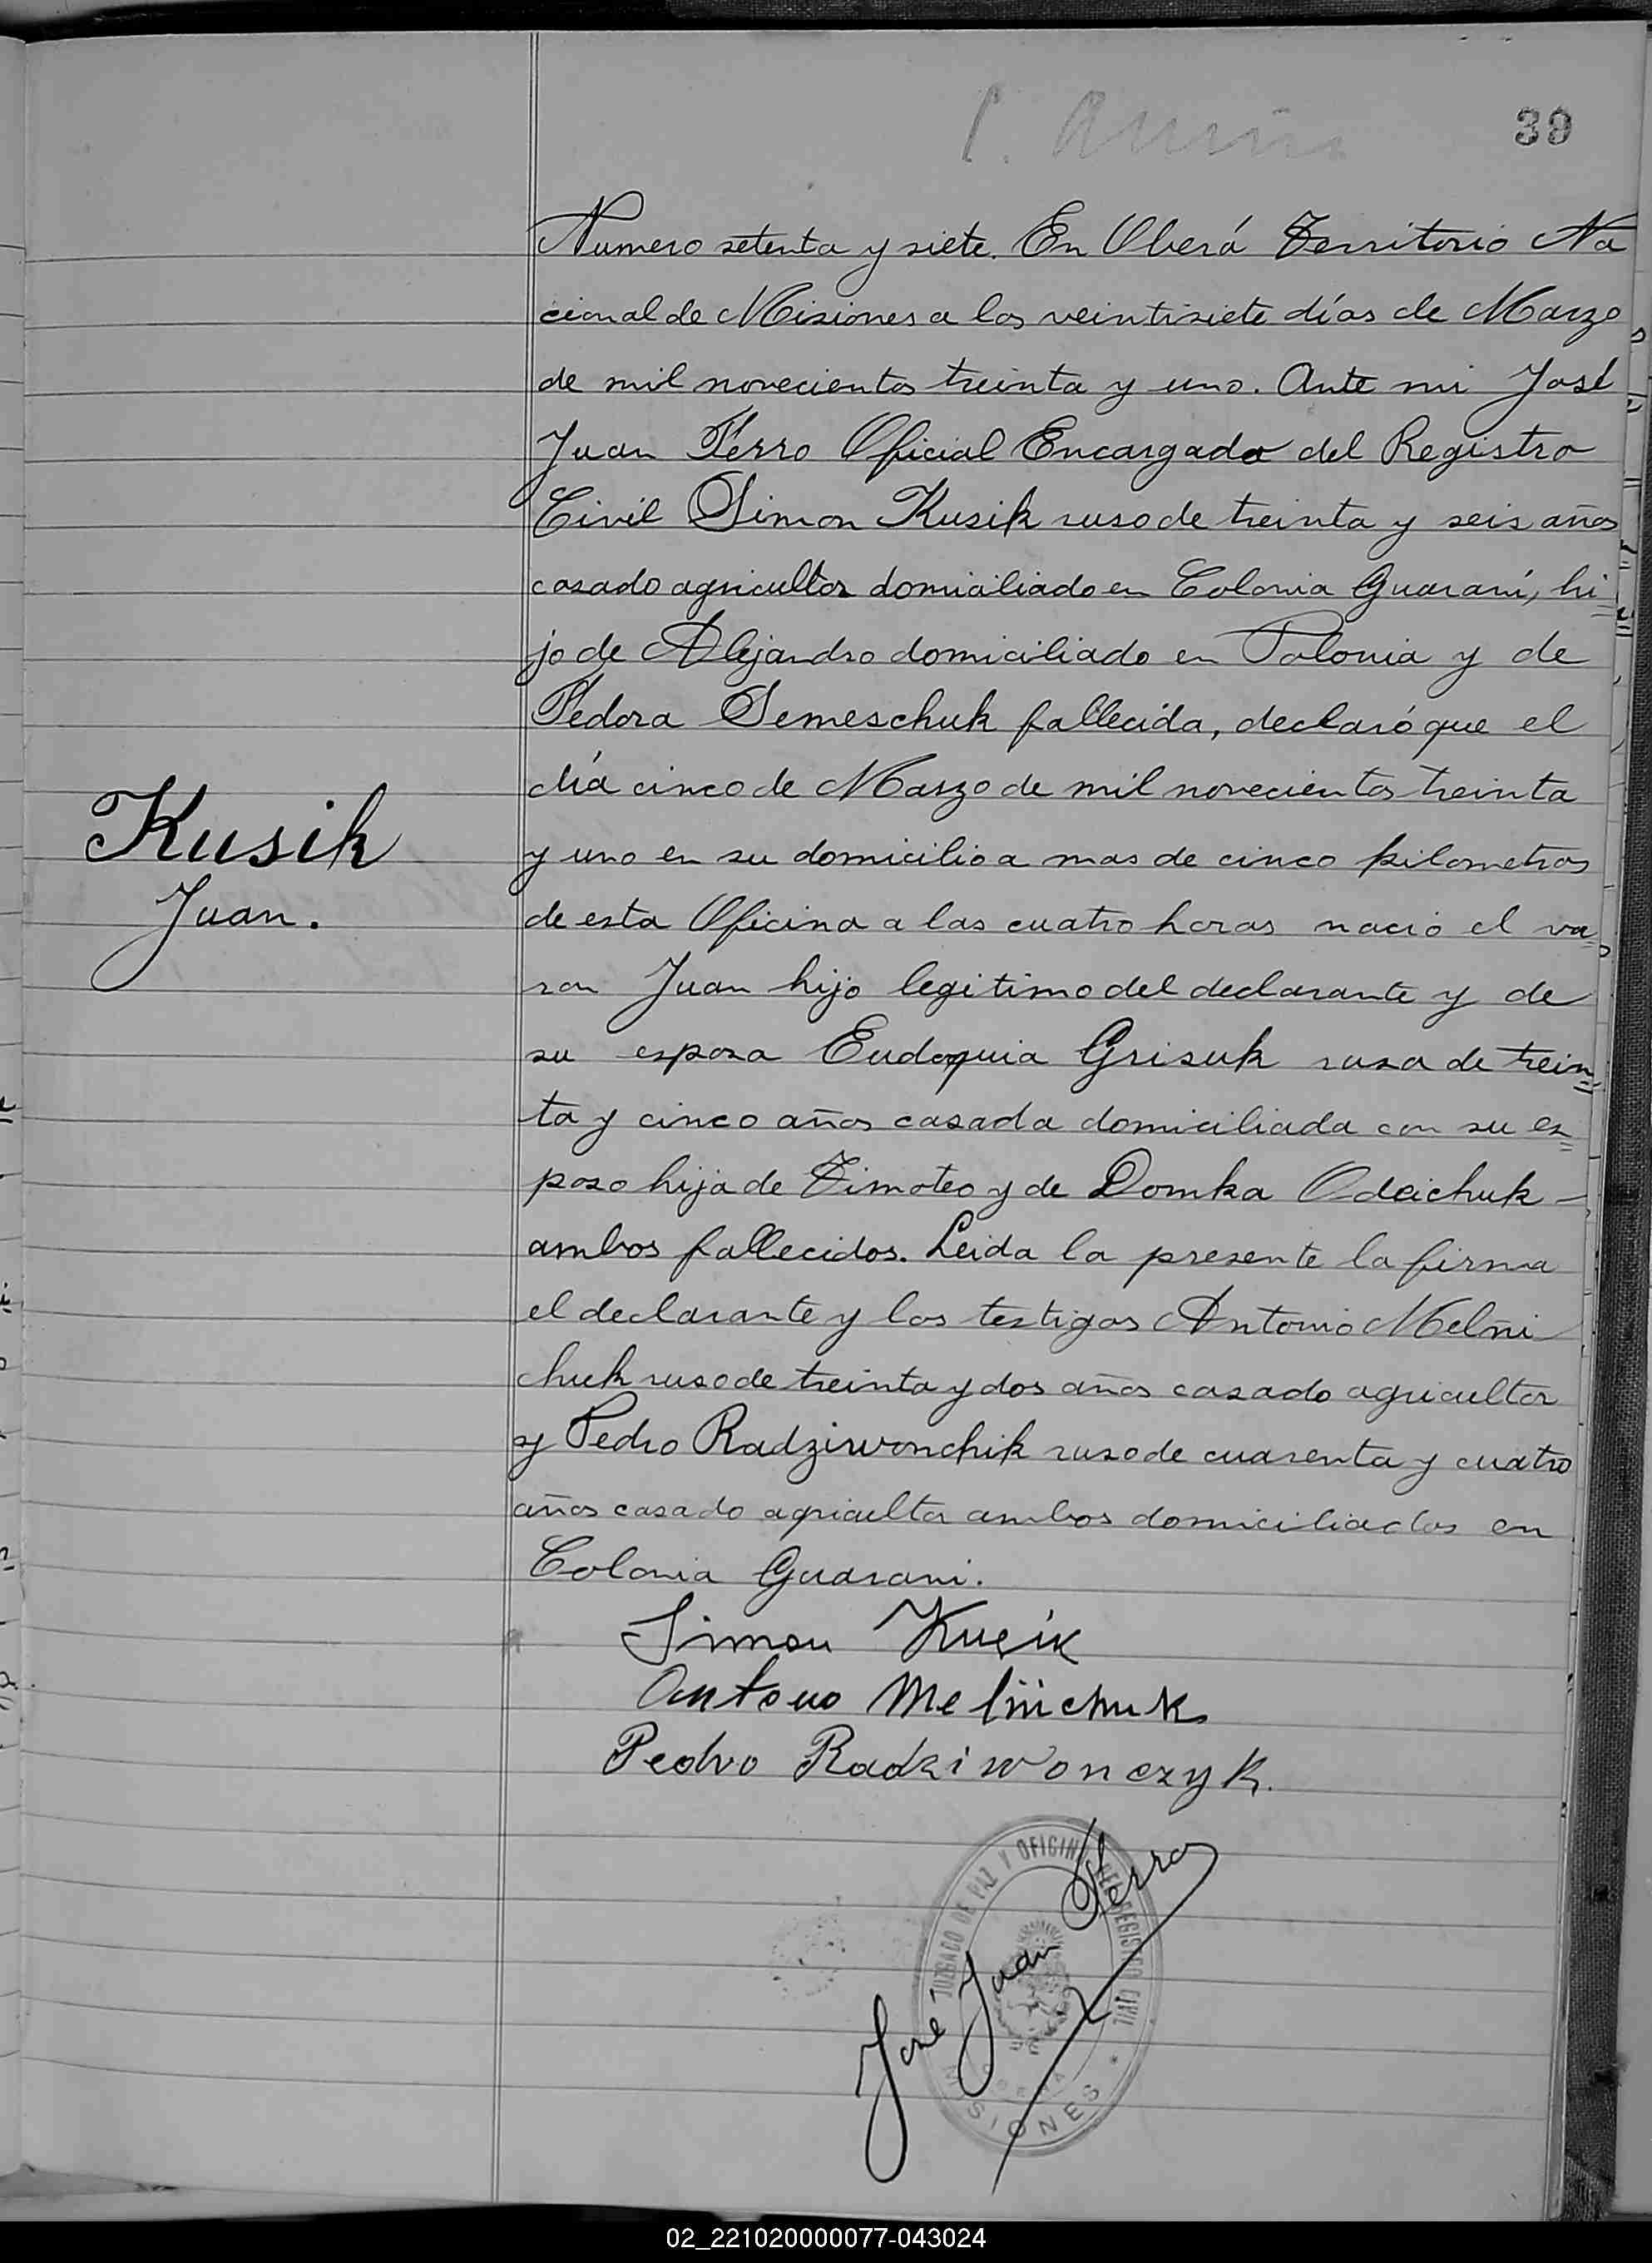 39
Numero setenta y siete. En Oberá Territorio Na
cional de Misiones a los veintisiete días de Marzo
de mil novecientos treinta y uno. Ante mi José
Juan Ferro Oficial Encargado del Registro
Civil Simon Kusik ruso de treinta y seis años
casado agricultor domiciliado en Colonia Guaraní, hi=
jo de Alejandro domiciliado en Polonia y de
Fedora Semeschuk fallecida, declaró que el
día cinco de Marzo de mil novecientos treinta
y uno en su domicilio a mas de cinco kilometros
de esta Oficina a las cuatro horas nació el va=
ron Juan hijo legitimo del declarante y de
su esposa Eudoquia Grisuk rusa de trein=
ta y cinco años casada domiciliada con su es=
poso hija de Timoteo y de Domka Odeichuk
ambos fallecidos. Leida la presente la firma
el declarante y los testigos Antonio Melni
chuk ruso de treinta y dos años casado agricultor
y Pedro Radziwonchik ruso de cuarenta y cuatro
años casado agricultor ambos domiciliados en
Colonia Guarani.
Kusik
Juan.
Simon Kusik
Antonio Melnichuk
Pedro Radziwonczyk.
José Juan Ferro
JUZGADO DE PAZ Y OFICINA DEL REGISTRO CIVIL
MISIONES
02_221020000077-043024